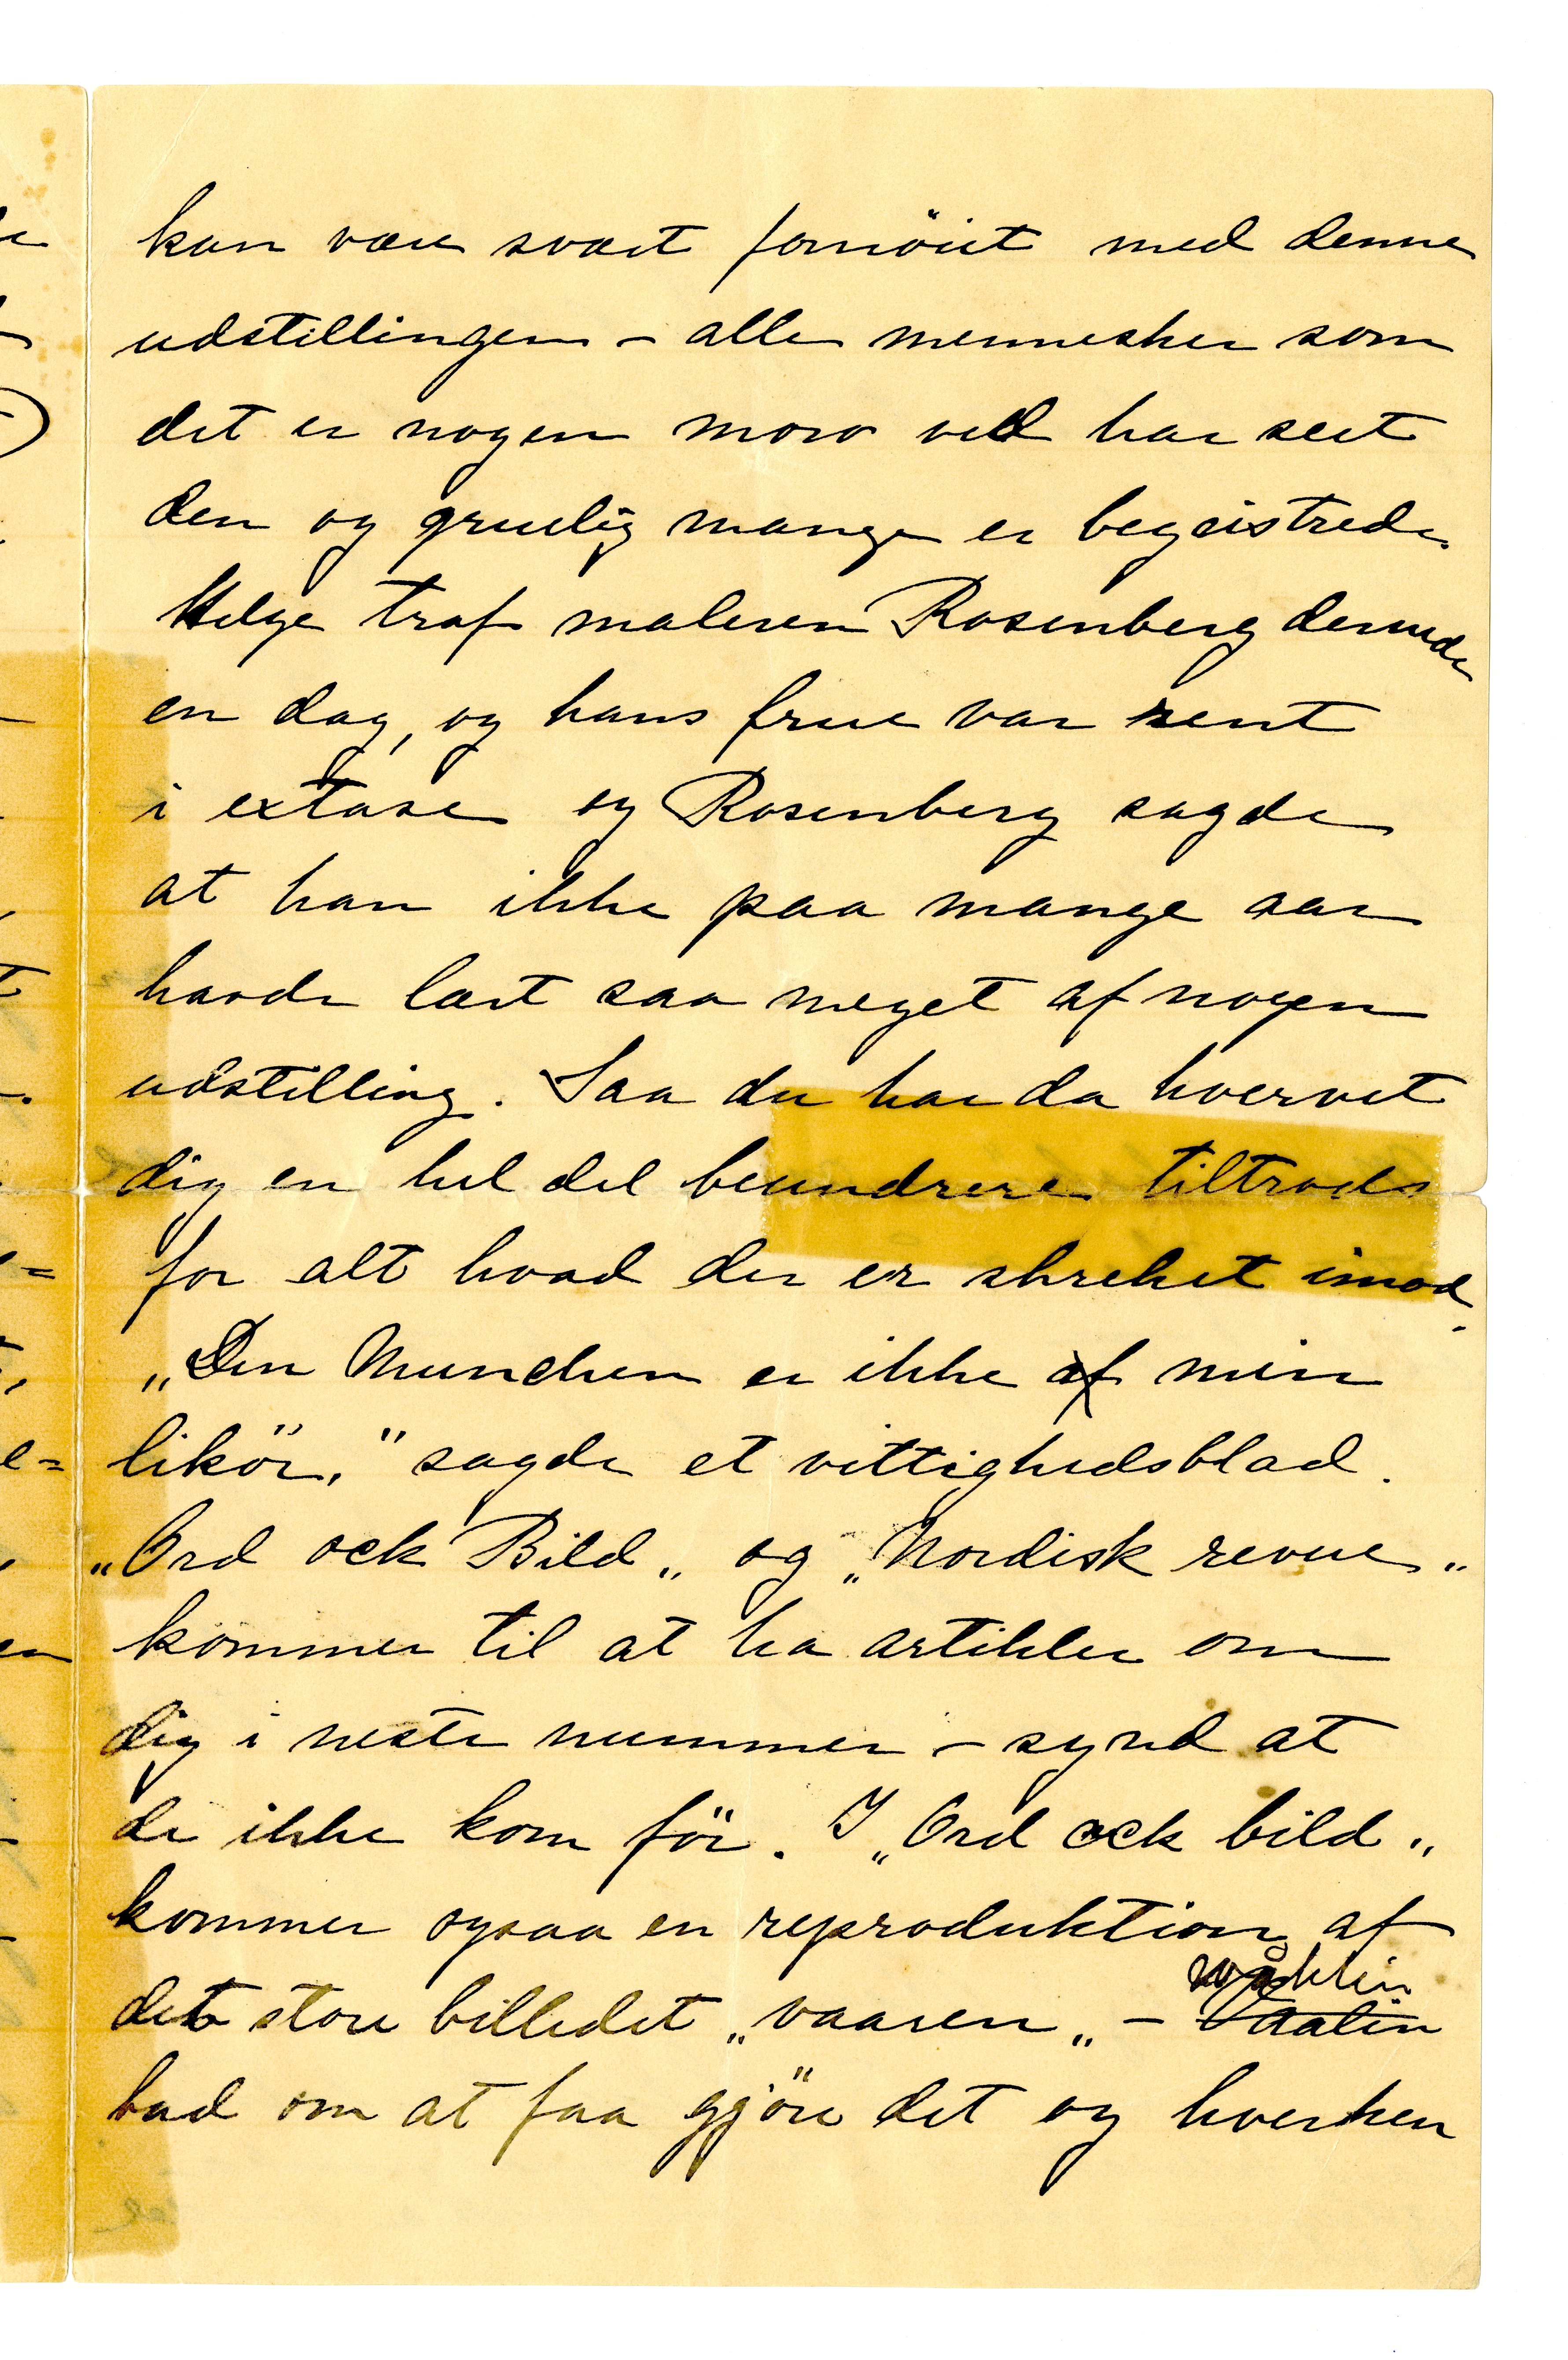 kan være svært fornöiet med denne
udstillingen – alle mennesker som
det er nogen moro ved har seet
den og gruelig mange er begeistrede.
Helge traf maleren Rosenberg derude
en dag, og hans frue var rent
i extase og Rosenberg sagde
at han ikke paa mange aar
havde lært saa meget af nogen
udstilling. Saa du har da hvervet
dig en hel del beundrere tiltrods
for alt hvad der er skreket imod.
„Den Munchen er ikke af min
likör," sagde et vittighedsblad.
„Ord ock Bild„ og „Nordisk revue„
kommer til at ha artikler om
dig i neste nummer – synd at
de ikke kom för. I „Ord ock bild„
kommer ogsaa en reproduktion af
Wåhlin
det store billedet „vaaren„ – Vaalin
bad om at faa gjöre det og hverken